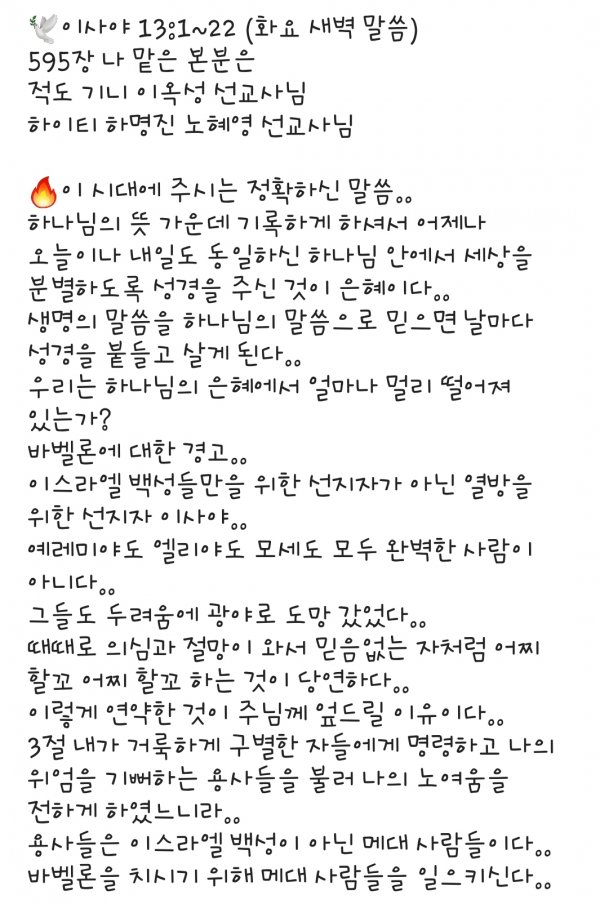 🕊이사야 13:1~22 (화요 새벽 말씀)
595장 나 맡은 본분은
적도 기니 이옥성 선교사님
하이티 하명진 노혜영 선교사님
🔥이 시대에 주시는 정확하신 말씀..
하나님의 뜻 가운데 기록하게 하셔서 어제나
오늘이나 내일도 동일하신 하나님 안에서 세상을
분별하도록 성경을 주신 것이 은혜이다..
생명의 말씀을 하나님의 말씀으로 믿으면 날마다
성경을 붙들고 살게 된다..
우리는 하나님의 은혜에서 얼마나 멀리 떨어져
있는가?
바벨론에 대한 경고..
이스라엘 백성들만을 위한 선지자가 아닌 열방을
위한 선지자 이사야..
예레미야도 엘리야도 모세도 모두 완벽한 사람이
아니다..
그들도 두려움에 광야로 도망 갔었다..
때때로 의심과 절망이 와서 믿음없는 자처럼 어찌
할꼬 어찌 할꼬 하는 것이 당연하다..
이렇게 연약한 것이 주님께 엎드릴 이유이다..
3절 내가 거룩하게 구별한 자들에게 명령하고 나의
위엄을 기뻐하는 용사들을 불러 나의 노여움을
전하게 하였느니라..
용사들은 이스라엘 백성이 아닌 메대 사람들이다..
바벨론을 치시기 위해 메대 사람들을 일으키신다..